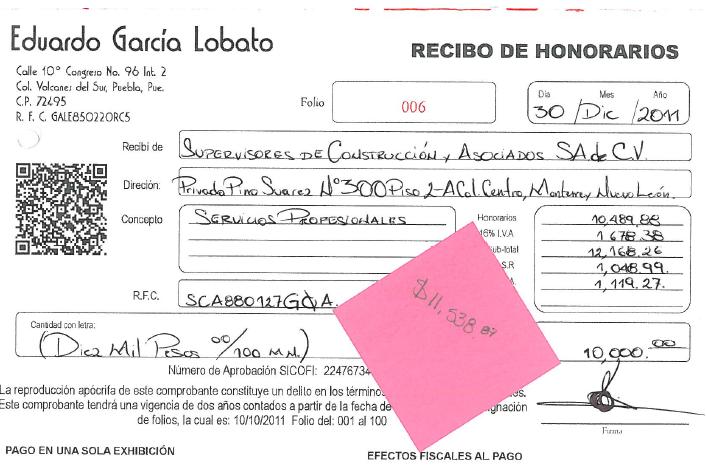 Eduardo García Lobato
RECIBO DE HONORARIOS
Calle 10° Congreso No. 96 Int. 2
Col. Volcanes del Sur, Puebla, Pue.
C.P. 72495
R. F. C. GALE850220RC5
Folio 006
Día Mes Año
30 / Dic / 2011
Recibi de SUPERVISORES DE CONSTRUCCIÓN Y ASOCIADOS SA de C.V.
Direción: Privada Pino Suarez Nº300 Piso 2-A Col. Centro, Monterrey Nuevo León.
Concepto SERVICIOS PROFESIONALES
Honorarios 10,489.88
16% I.V.A 1678.38
Sub-total 12,168.26
S.R 1,048.99.
A. 1,119.27.
R.F.C. SCA880127GQA.
$11,538.87
Cantidad con letra:
(DIEZ MIL PESOS 00/100 M.N.) 10,000.00
Número de Aprobación SICOFI: 22476734
La reproducción apócrifa de este comprobante constituye un delito en los términos
Este comprobante tendrá una vigencia de dos años contados a partir de la fecha de
de folios, la cual es: 10/10/2011 Folio del: 001 al 100
Firma
PAGO EN UNA SOLA EXHIBICIÓN
EFECTOS FISCALES AL PAGO